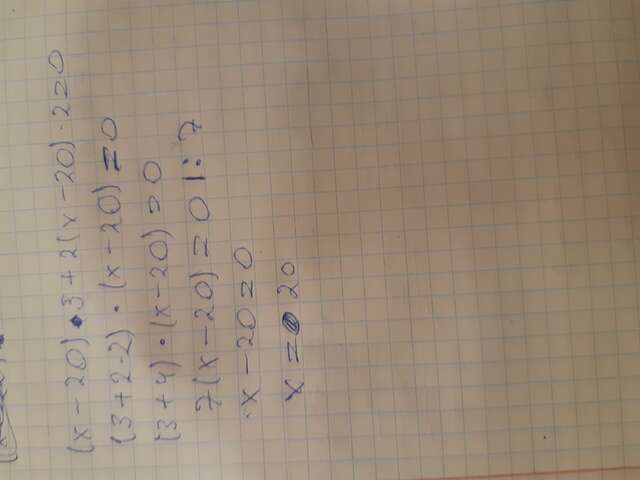 (x - 20) • 3 + 2(x - 20) · 2 = 0
(3 + 2·2) · (x - 20) = 0
(3 + 4) · (x - 20) = 0
7(x - 20) = 0 | : 7
x - 20 = 0
x = 20